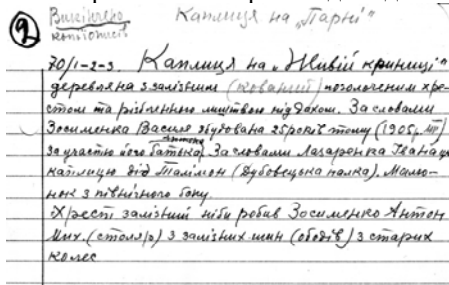 9
Викінчено
копіюпись
Каплиця на „Парні"
70/1-2-3. Каплиця на „Живій криниці"
деревяна з залізним (кований) позолоченим хре-
стом та різьбленною лиштвою під дахом. За словами
Зосименка Василя збудована 25 років тому (1905р.)
за участю його батька Антона. За словами Лазаренка Івана цю
каплицю дід Талімон (Дубовецька палка). Малю-
нок з північного боку.
Хрести залізний ніби робив Зосименко Антон
Мих. (столяр) з залізних шин (ободів) з старих
колес